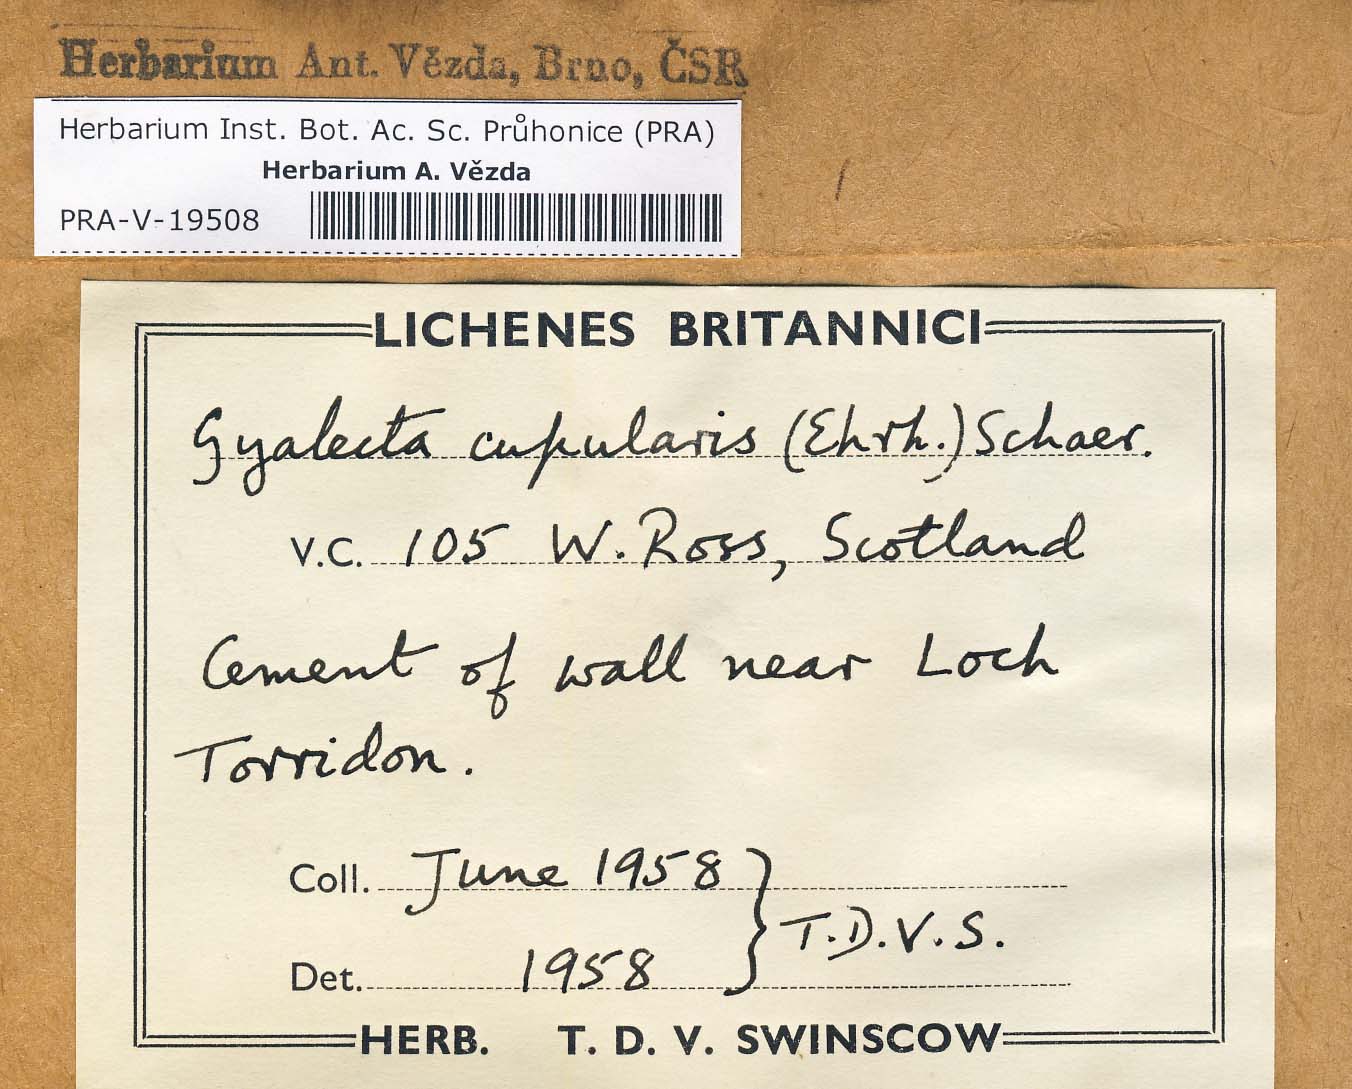 Herbarium Ant. Vězda, Brno, ČSR
Herbarium Inst. Bot. Ac. Sc. Průhonice (PRA)
Herbarium A. Vězda
PRA-V-19508
LICHENES BRITANNICI
Gyalecta cupularis (Ehrh.) Schaer.
V.C. 105 W. Ross, Scotland
Cement of wall near Loch
Torridon.
Coll. June 1958
T.D.V.S.
Det. 1958
HERB. T. D. V. SWINSCOW